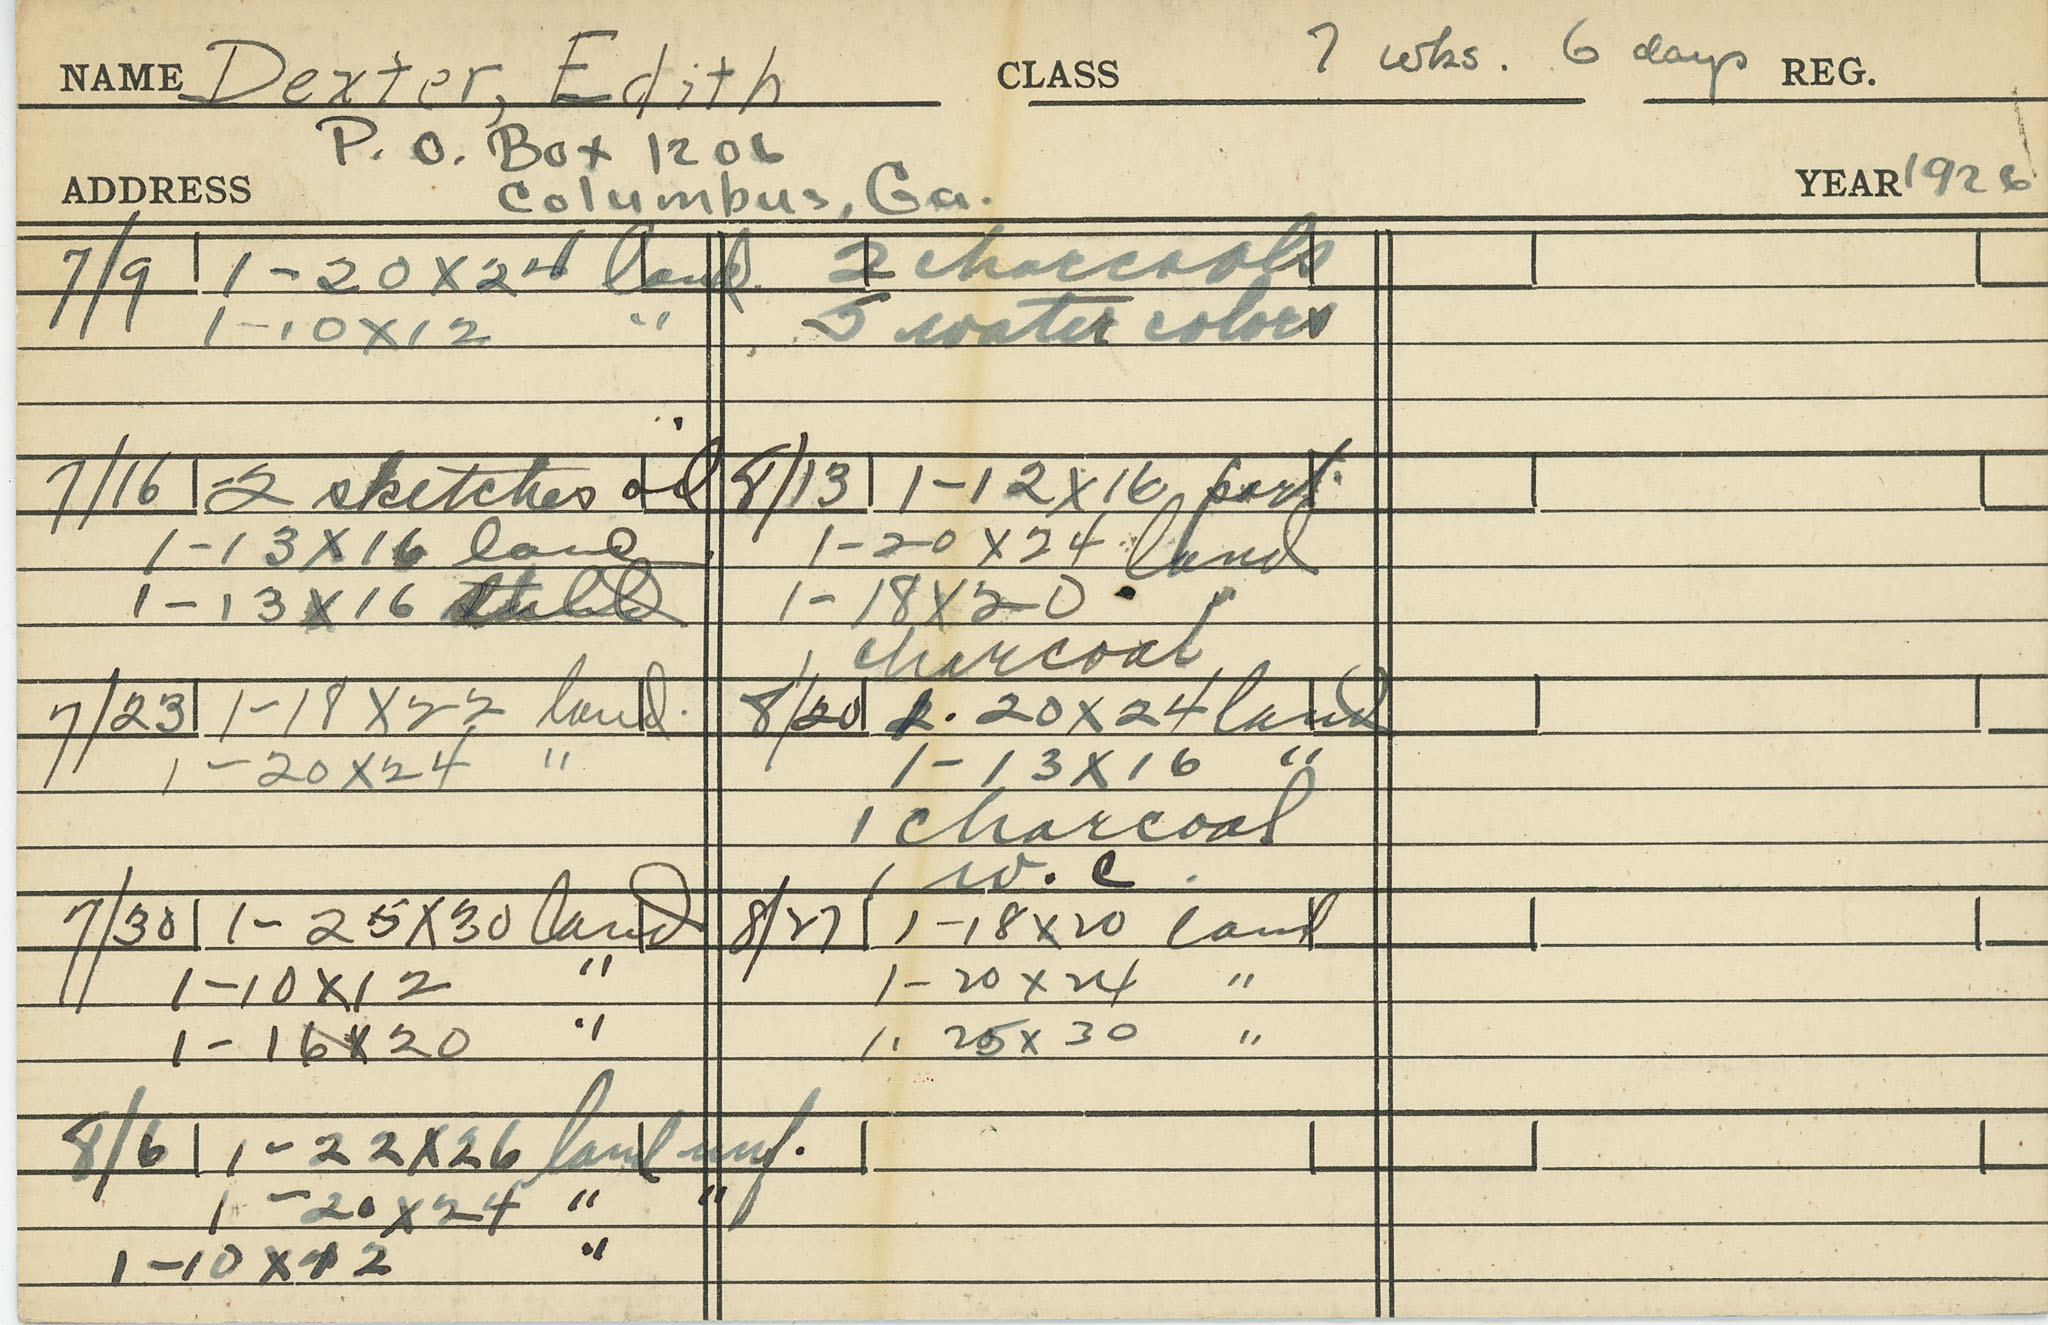 NAME Dexter, Edith CLASS 7 wks. 6 days REG.
P. O. Box 1206
ADDRESS Columbus, Ga. YEAR 1926
7/9 1-20X24 land. 2 charcoals
1-10X12 " 5 water colors
7/16 2 sketches oil
1-13X16 land
1-13X16
7/23 1-18X22 land.
1-20X24 "
7/30 1-25X30 land
1-10X12 "
1-16X20 "
8/6 1-22X26 land unf.
1-20X24 " "
1-10X12 "
8/13 1-12X16 port.
1-20X24 land
1-18X20 "
1 charcoal
8/20 2. 20X24 land
1-13X16 "
1 charcoal
1 w.c.
8/27 1-18X20 land
1-20X24 "
1. 25X30 "